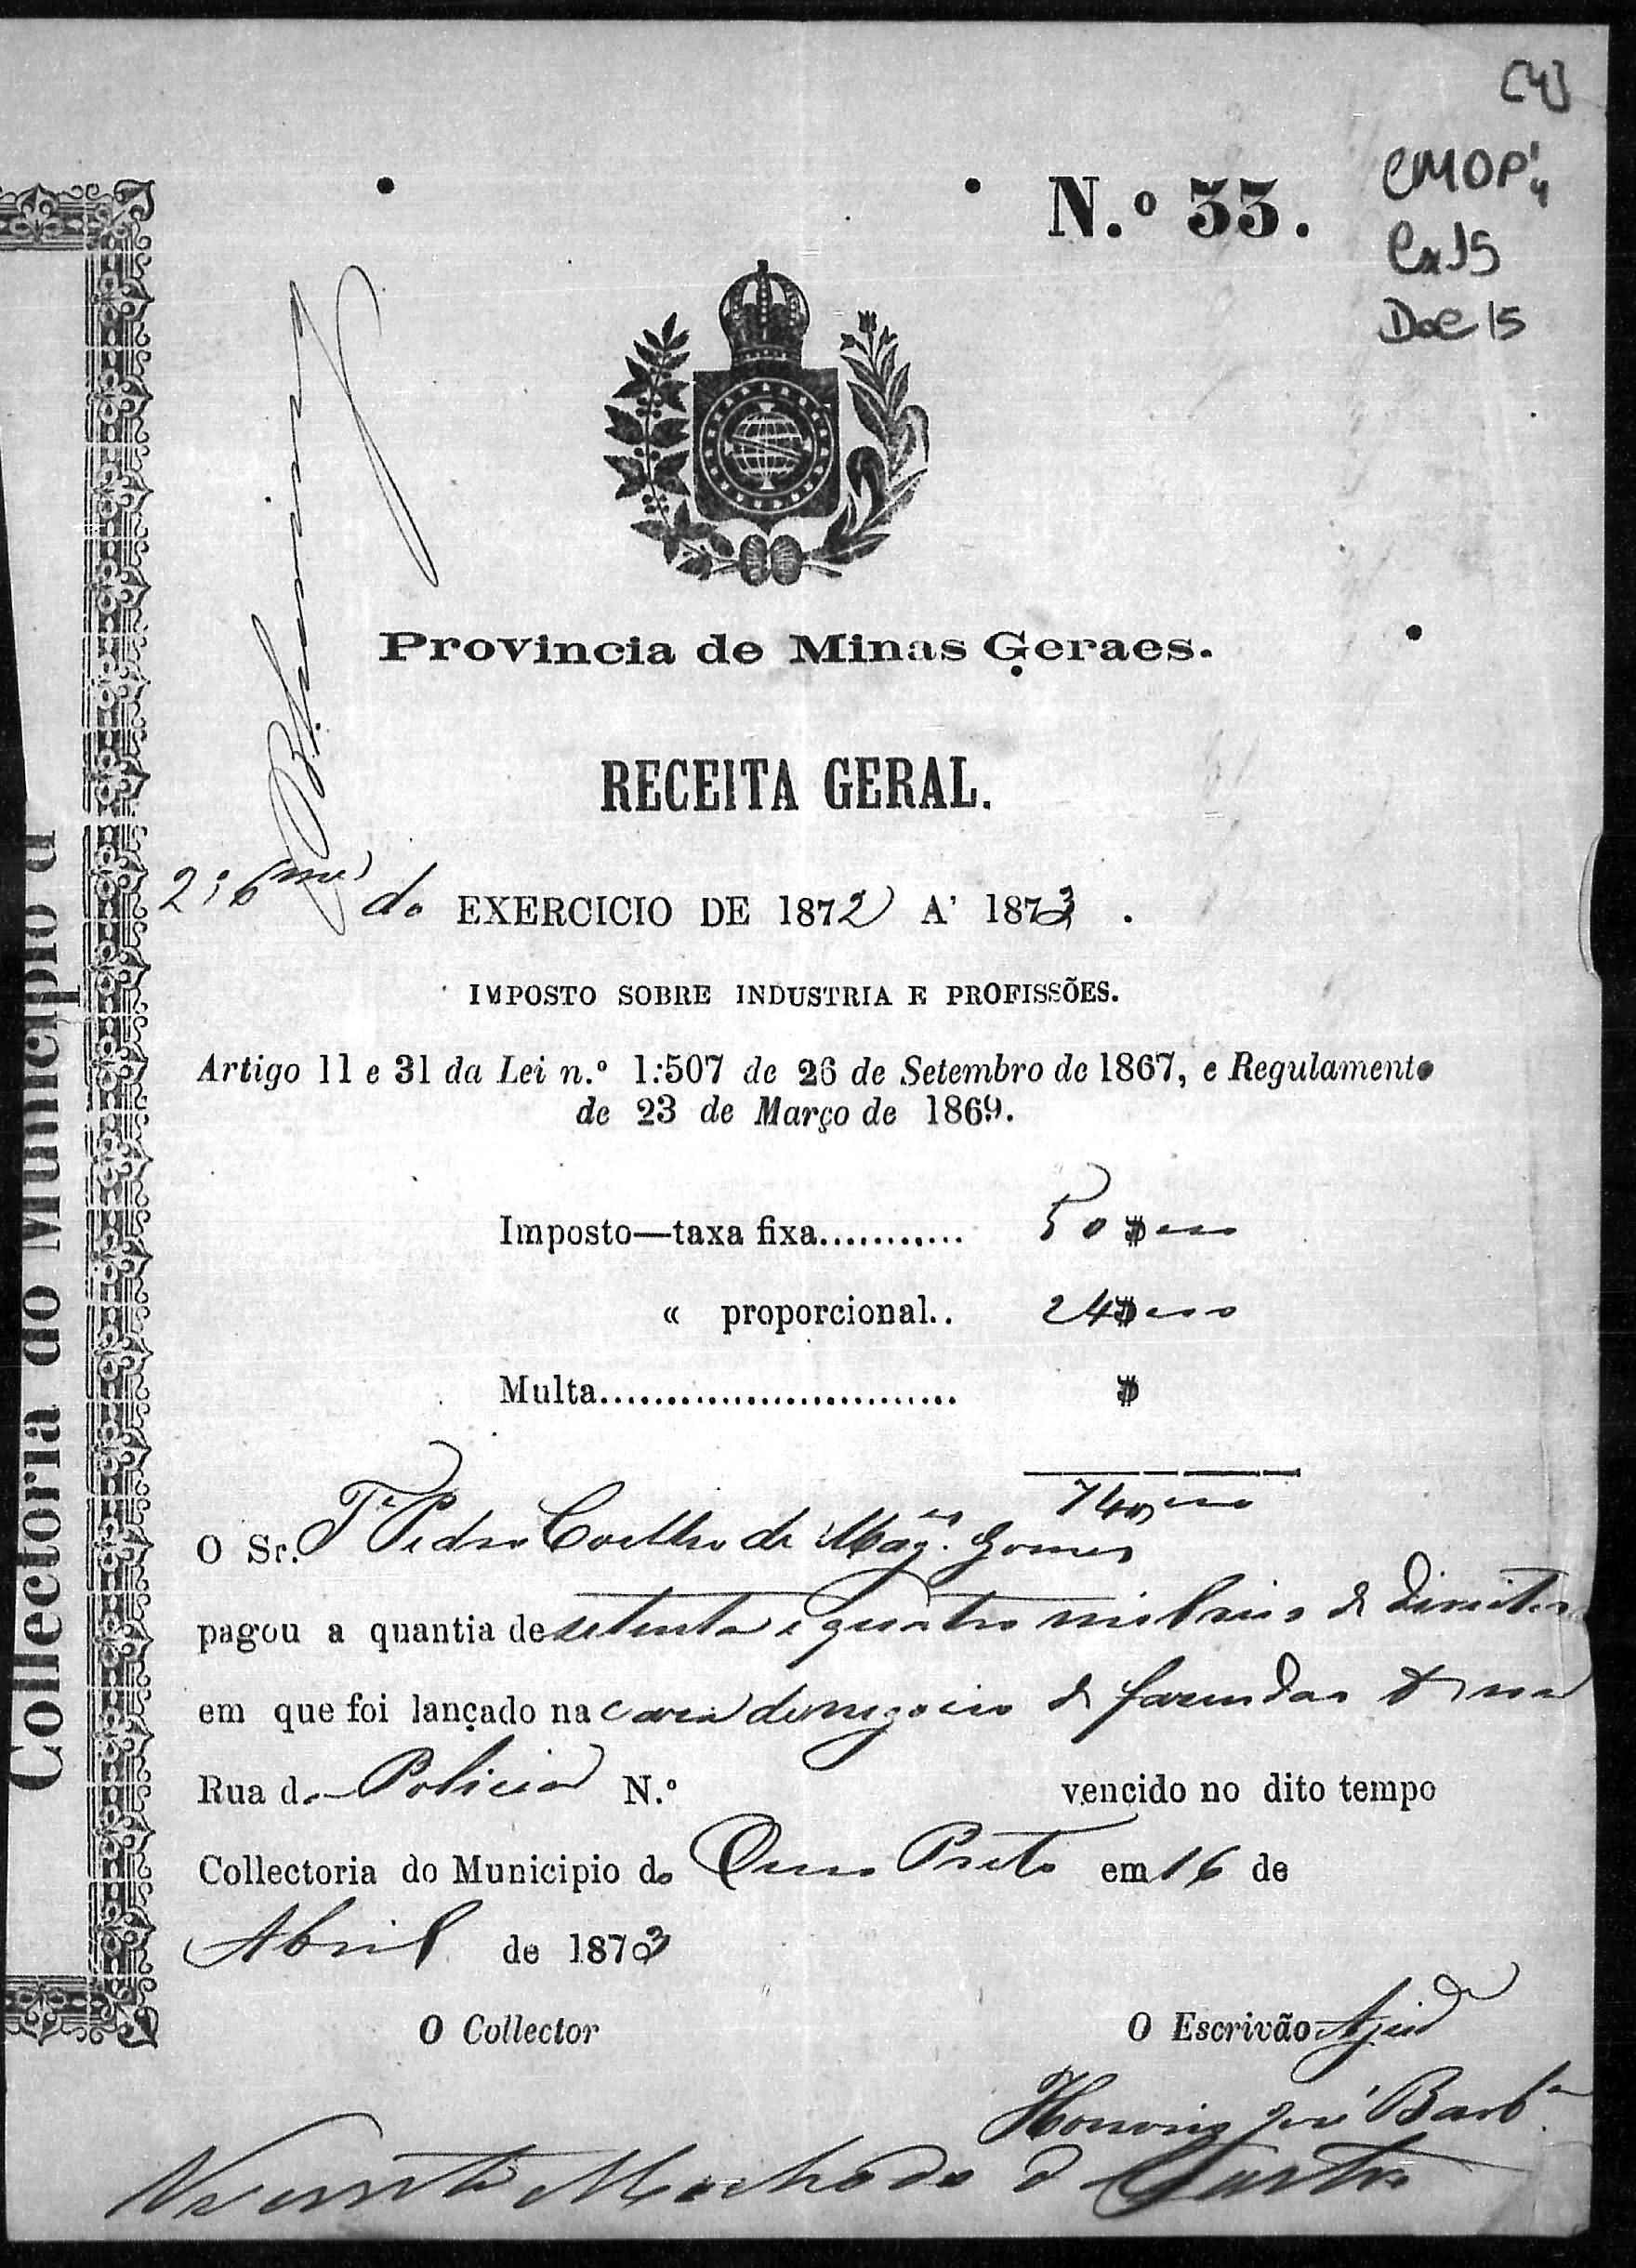 [4]
CMOP
Cx 15
Doc 15
N.º 33.
Provincia de Minas Geraes.
RECEITA GERAL.
do EXERCICIO DE 1872 A' 1873.
IMPOSTO SOBRE INDUSTRIA E PROFISSÕES.
Artigo 11 e 31 da Lei n.º 1:507 de 26 de Setembro de 1867, e Regulamento
de 23 de Março de 1869.
Imposto—taxa fixa........... 50$
« proporcional.. 24$
Multa............................ $
74$
O Sr. Te Pedro Coelho de Mag.es Gomes
pagou a quantia de setenta e quatro mil reis de direitos
em que foi lançado na casa de negocio de fazendas & na
Rua da Policia N.º vencido no dito tempo
Collectoria do Municipio do Ouro Preto em 16 de
Abril de 1873
O Collector O Escrivão Ajud
Honorio José Barb.a
Vicente Machado de Castro
Collectoria do Municipio d